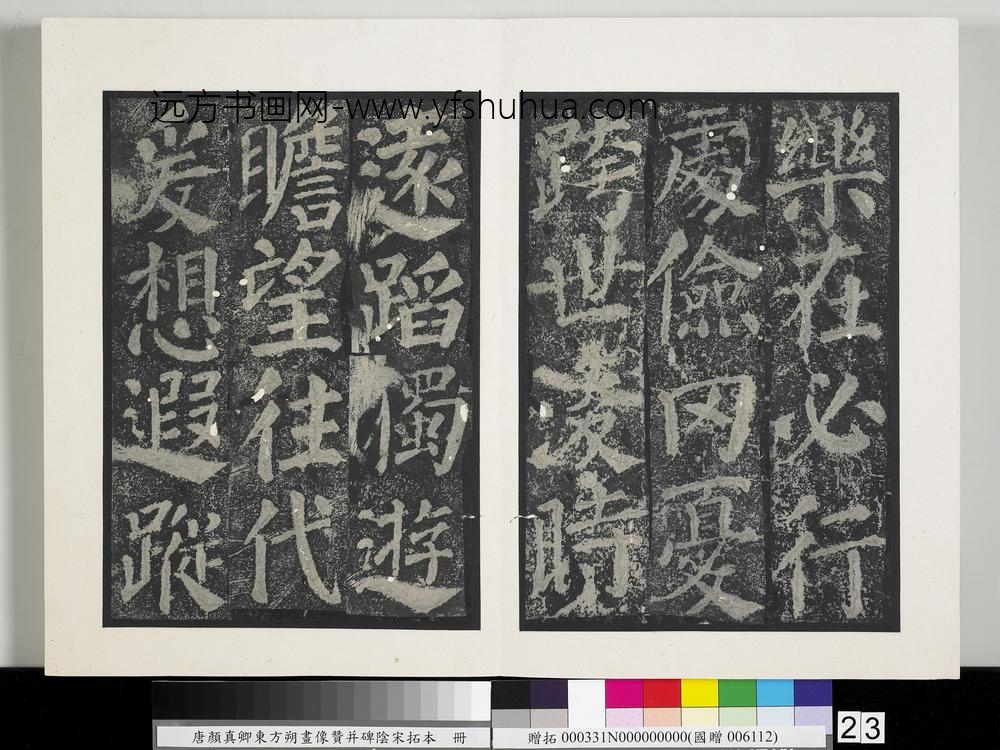 远方书画网-www.yfshuhua.com
樂在必行
處儉罔憂
跨世淩時
遠蹈獨遊
瞻望往代
爰想遐蹤
唐顏真卿東方朔畫像贊并碑陰宋拓本 冊
贈拓 000331N000000000(國贈 006112)
23